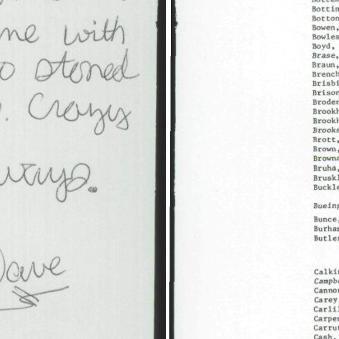 me with
stoned
Crazy
Dave
Bowen,
Bowles
Boyd,
Brase,
Braun,
Brench
Brisbi
Brison
Broden
Brookh
Brookh
Brooks
Brott,
Brown,
Browna
Bruha,
Bruskl
Buckle
Bueing
Bunce,
Burhan
Butler
Calkin
Campbe
Cannon
Carey
Carlil
Carpen
Carrut
Cash,